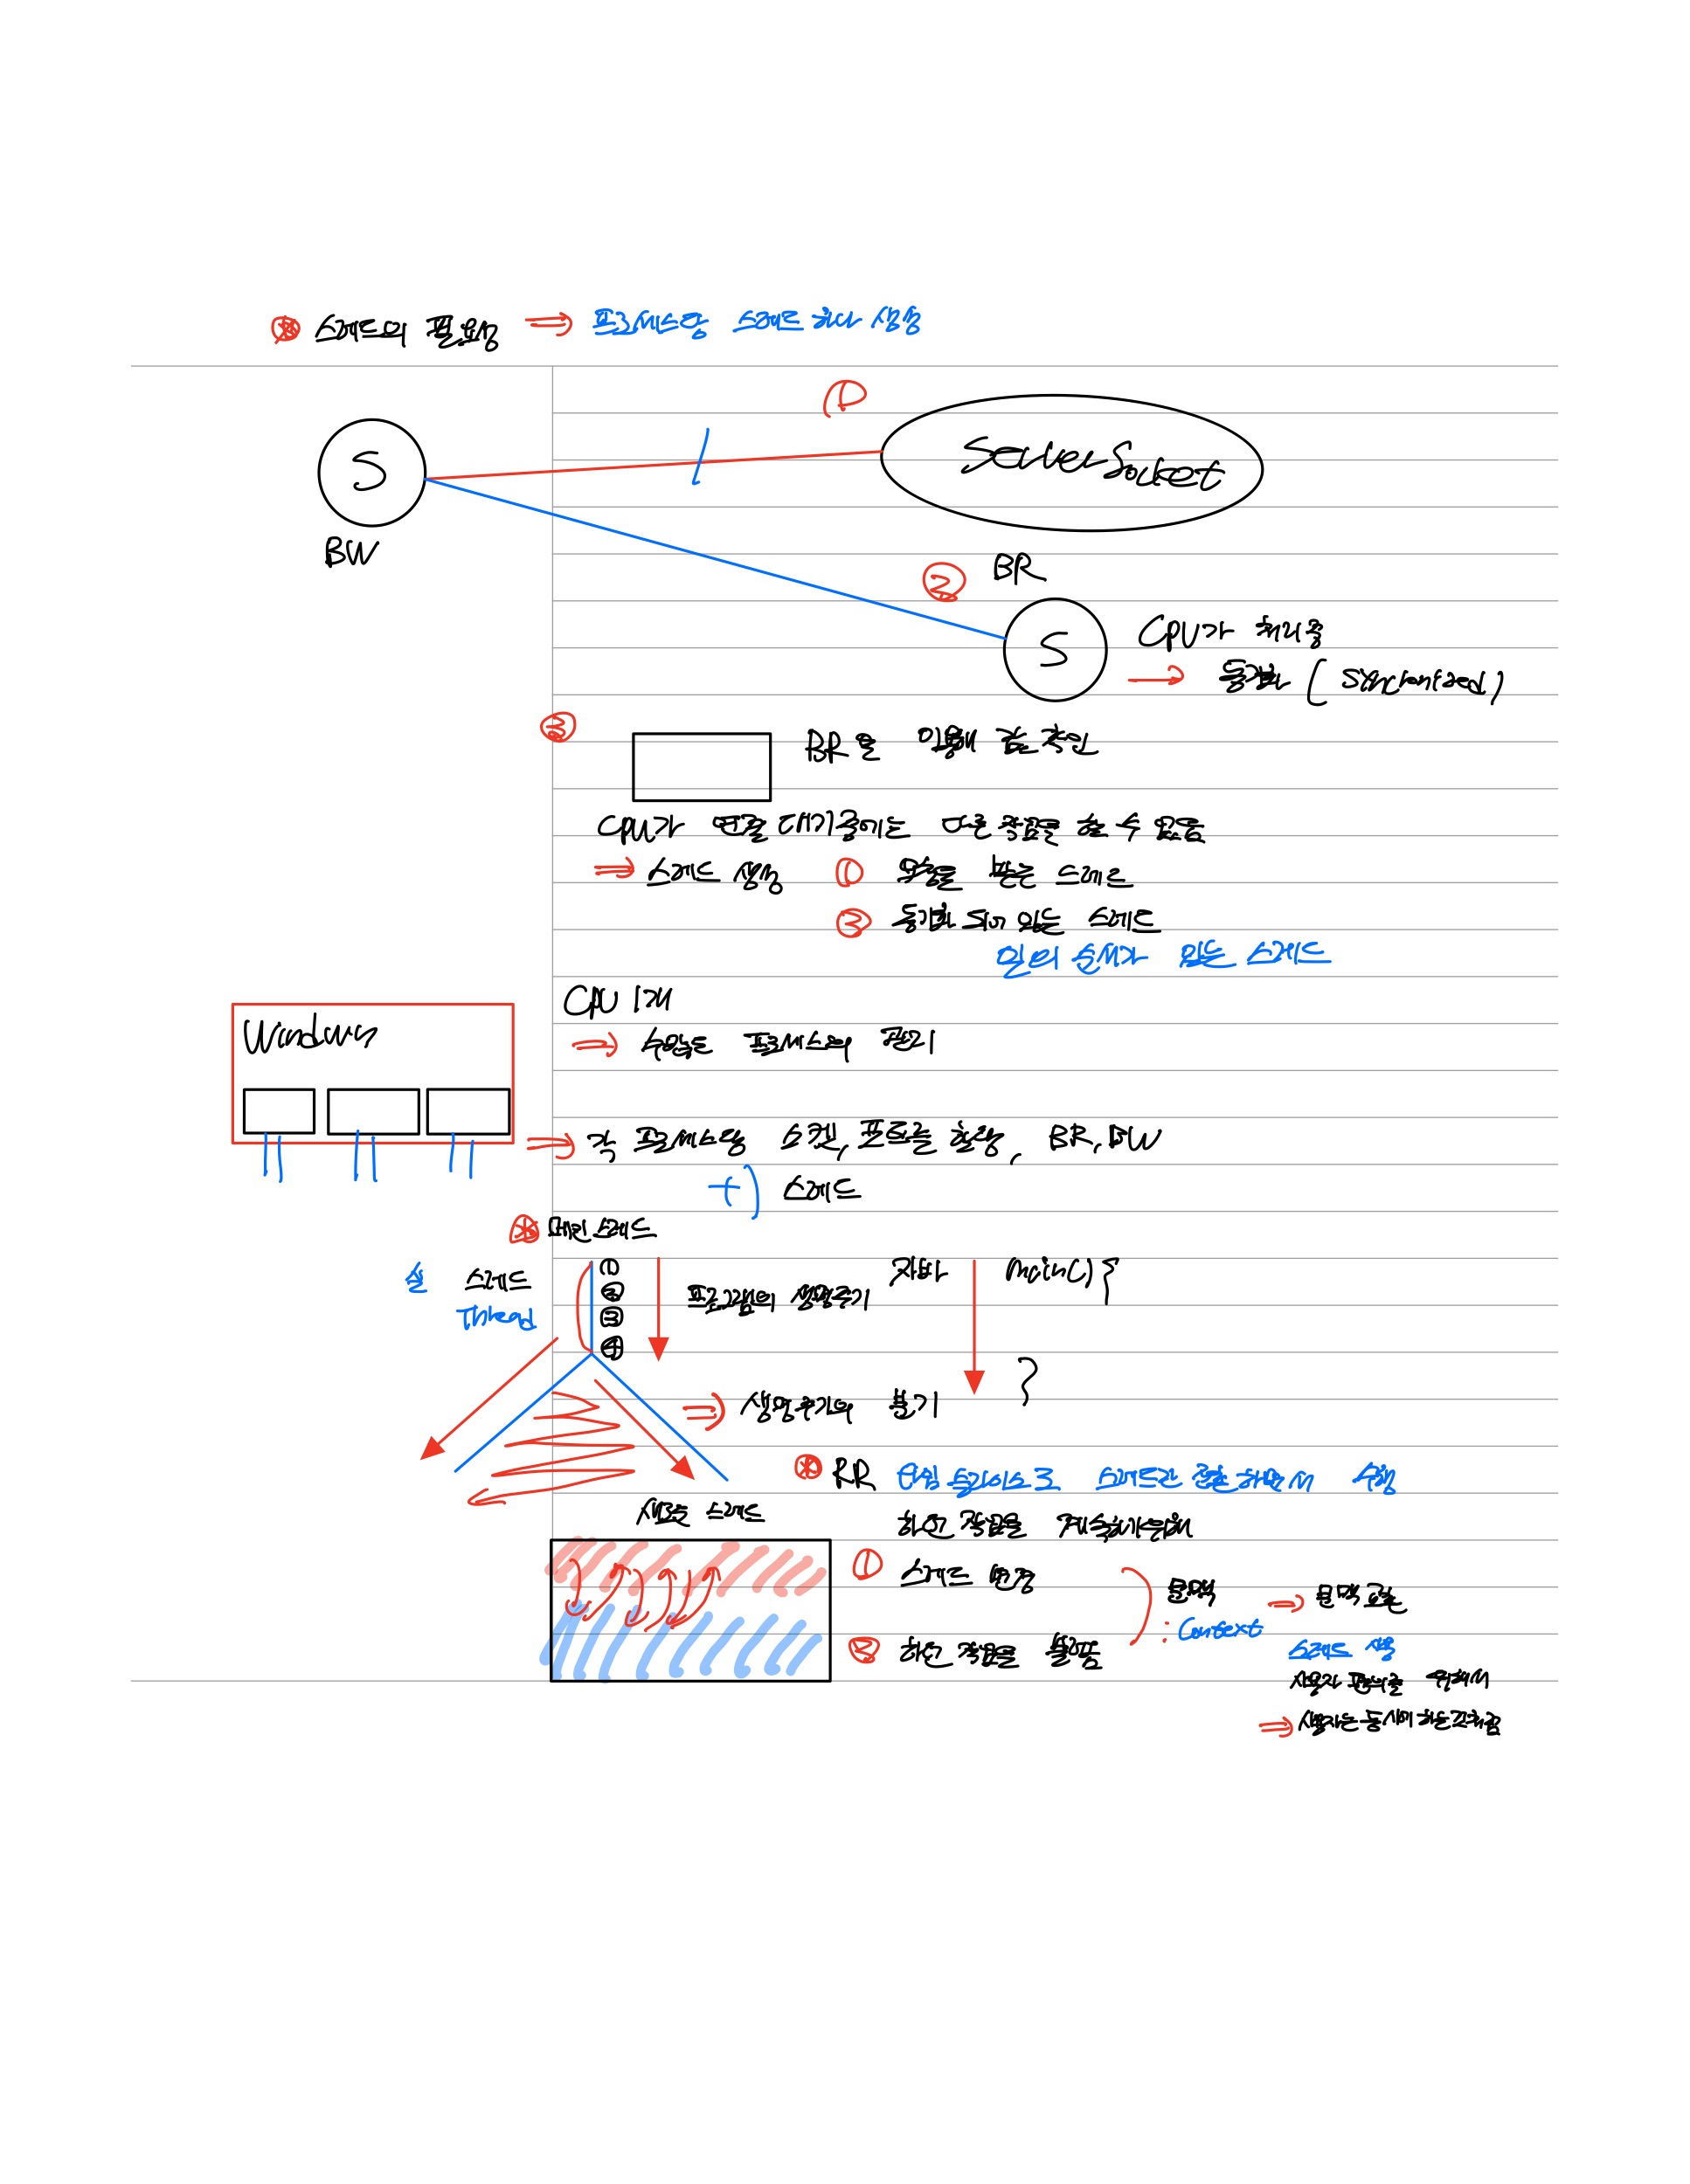 ⊛ 스레드의 필요성 ⇒ 프로세스당 스레드 하나 생성
①
S
ServerSocket
BW
② BR
S
CPU가 처리중
→ 동기화 (Synchronized)
③
BR을 이용해 값을 확인
CPU가 연결 대기중에는 다른 작업을 할 수 없음
⇒ 스레드 생성 ① 요청을 받는 스레드
③ 동기화 되어 있는 스레드
일의 순서가 있는 스레드
CPU 1개
⇒ 수많은 프로세스의 관리
Windows
⇒ 각 프로세스당 소켓, 포트를 할당, BR, BW
+) 스레드
⊛ 메인 스레드
실 스레드
Thread
①
②
③
④
프로그램의 생명주기
자바 main() {
}
⇒ 생명주기의 분기
⊛ RR 타임 슬라이스로 스레드간 전환하면서 수행
새로운 스레드
하던 작업을 계속하기위해
① 스레드 변경
② 하던 작업을 불러옴
문맥
: Context
⇒ 문맥 교환
스레드 사용
사용자 편의를 위해서
⇒ 사용자는 동시에 하는것처럼